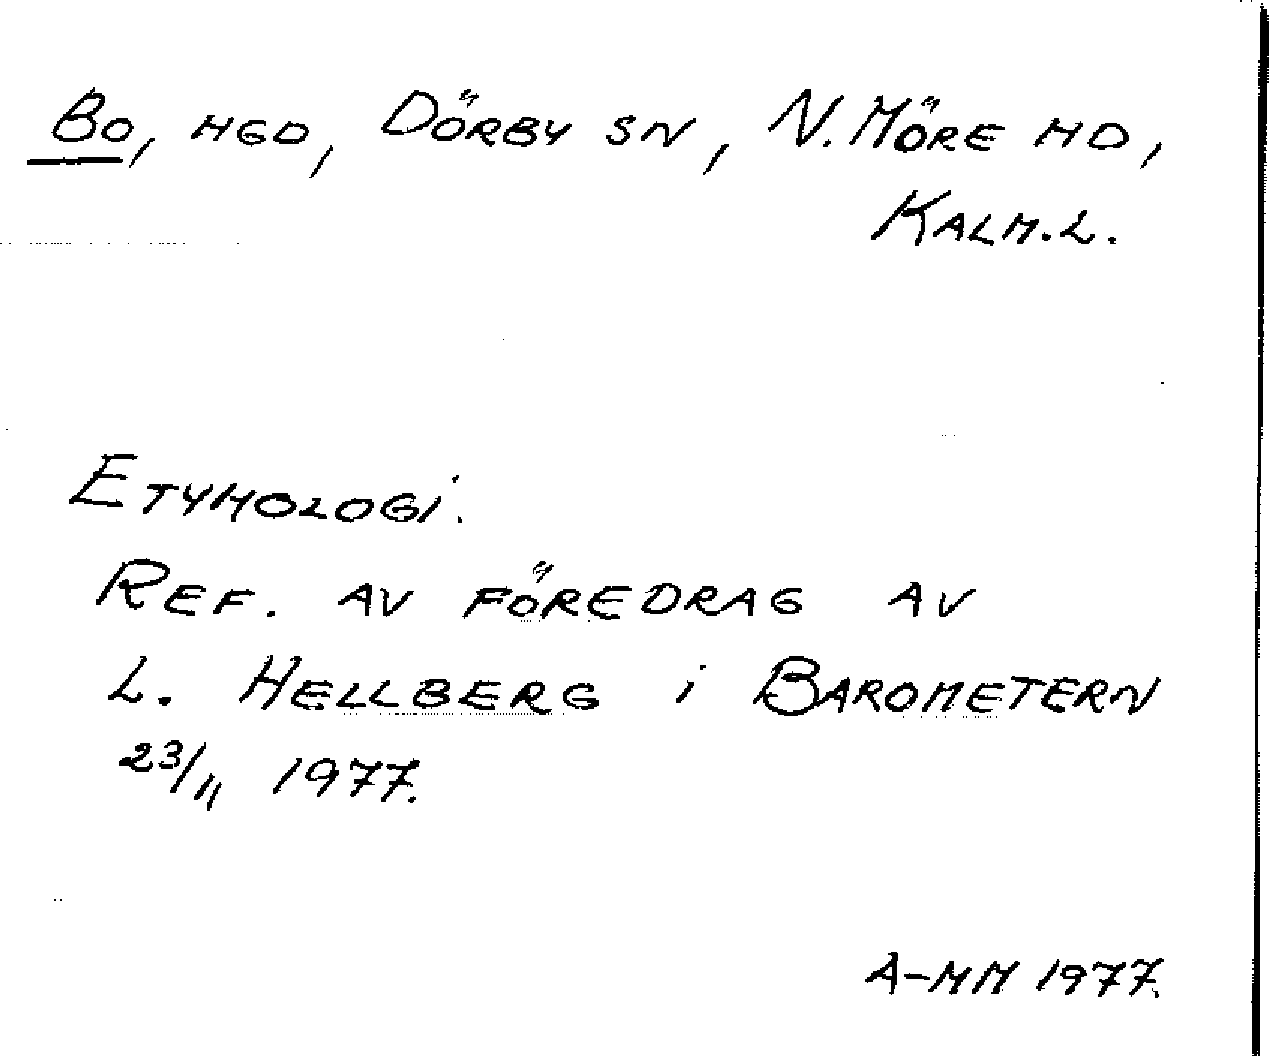 Bo, HGD, DÖRBY SN, N. MÖRE HD,
KALM. L.
ETYMOLOGI.
REF. AV FÖREDRAG AV
L. HELLBERG i BAROMETERN
23/11 1977.
A-MM 1977.